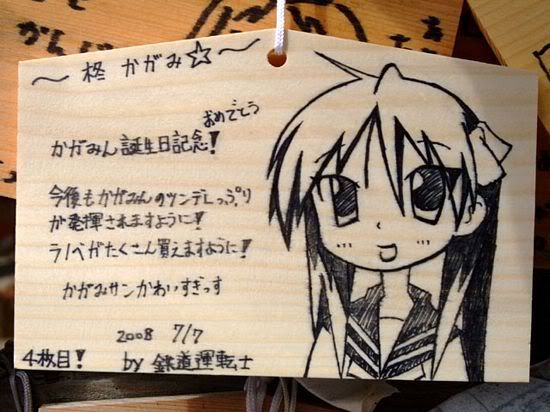 ～柊 かがみ☆～
おめでとう
かがみん誕生日記念!
今後もかがみんのツンデレっぷり
が発揮されますように!
ラノベがたくさん買えますように!
かがみサンかわいすぎっす
2008 7/7
4枚目! by 鉄道運転士